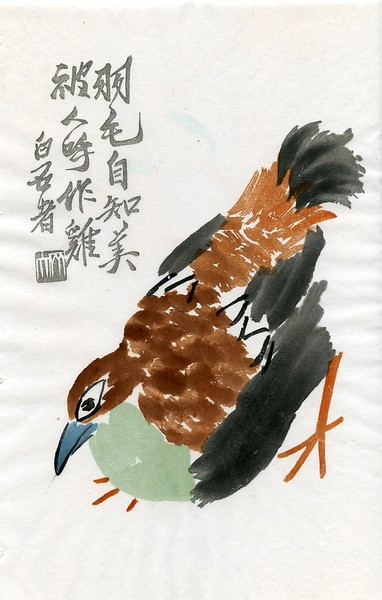 羽毛自知美
被人呼作雞
白石者